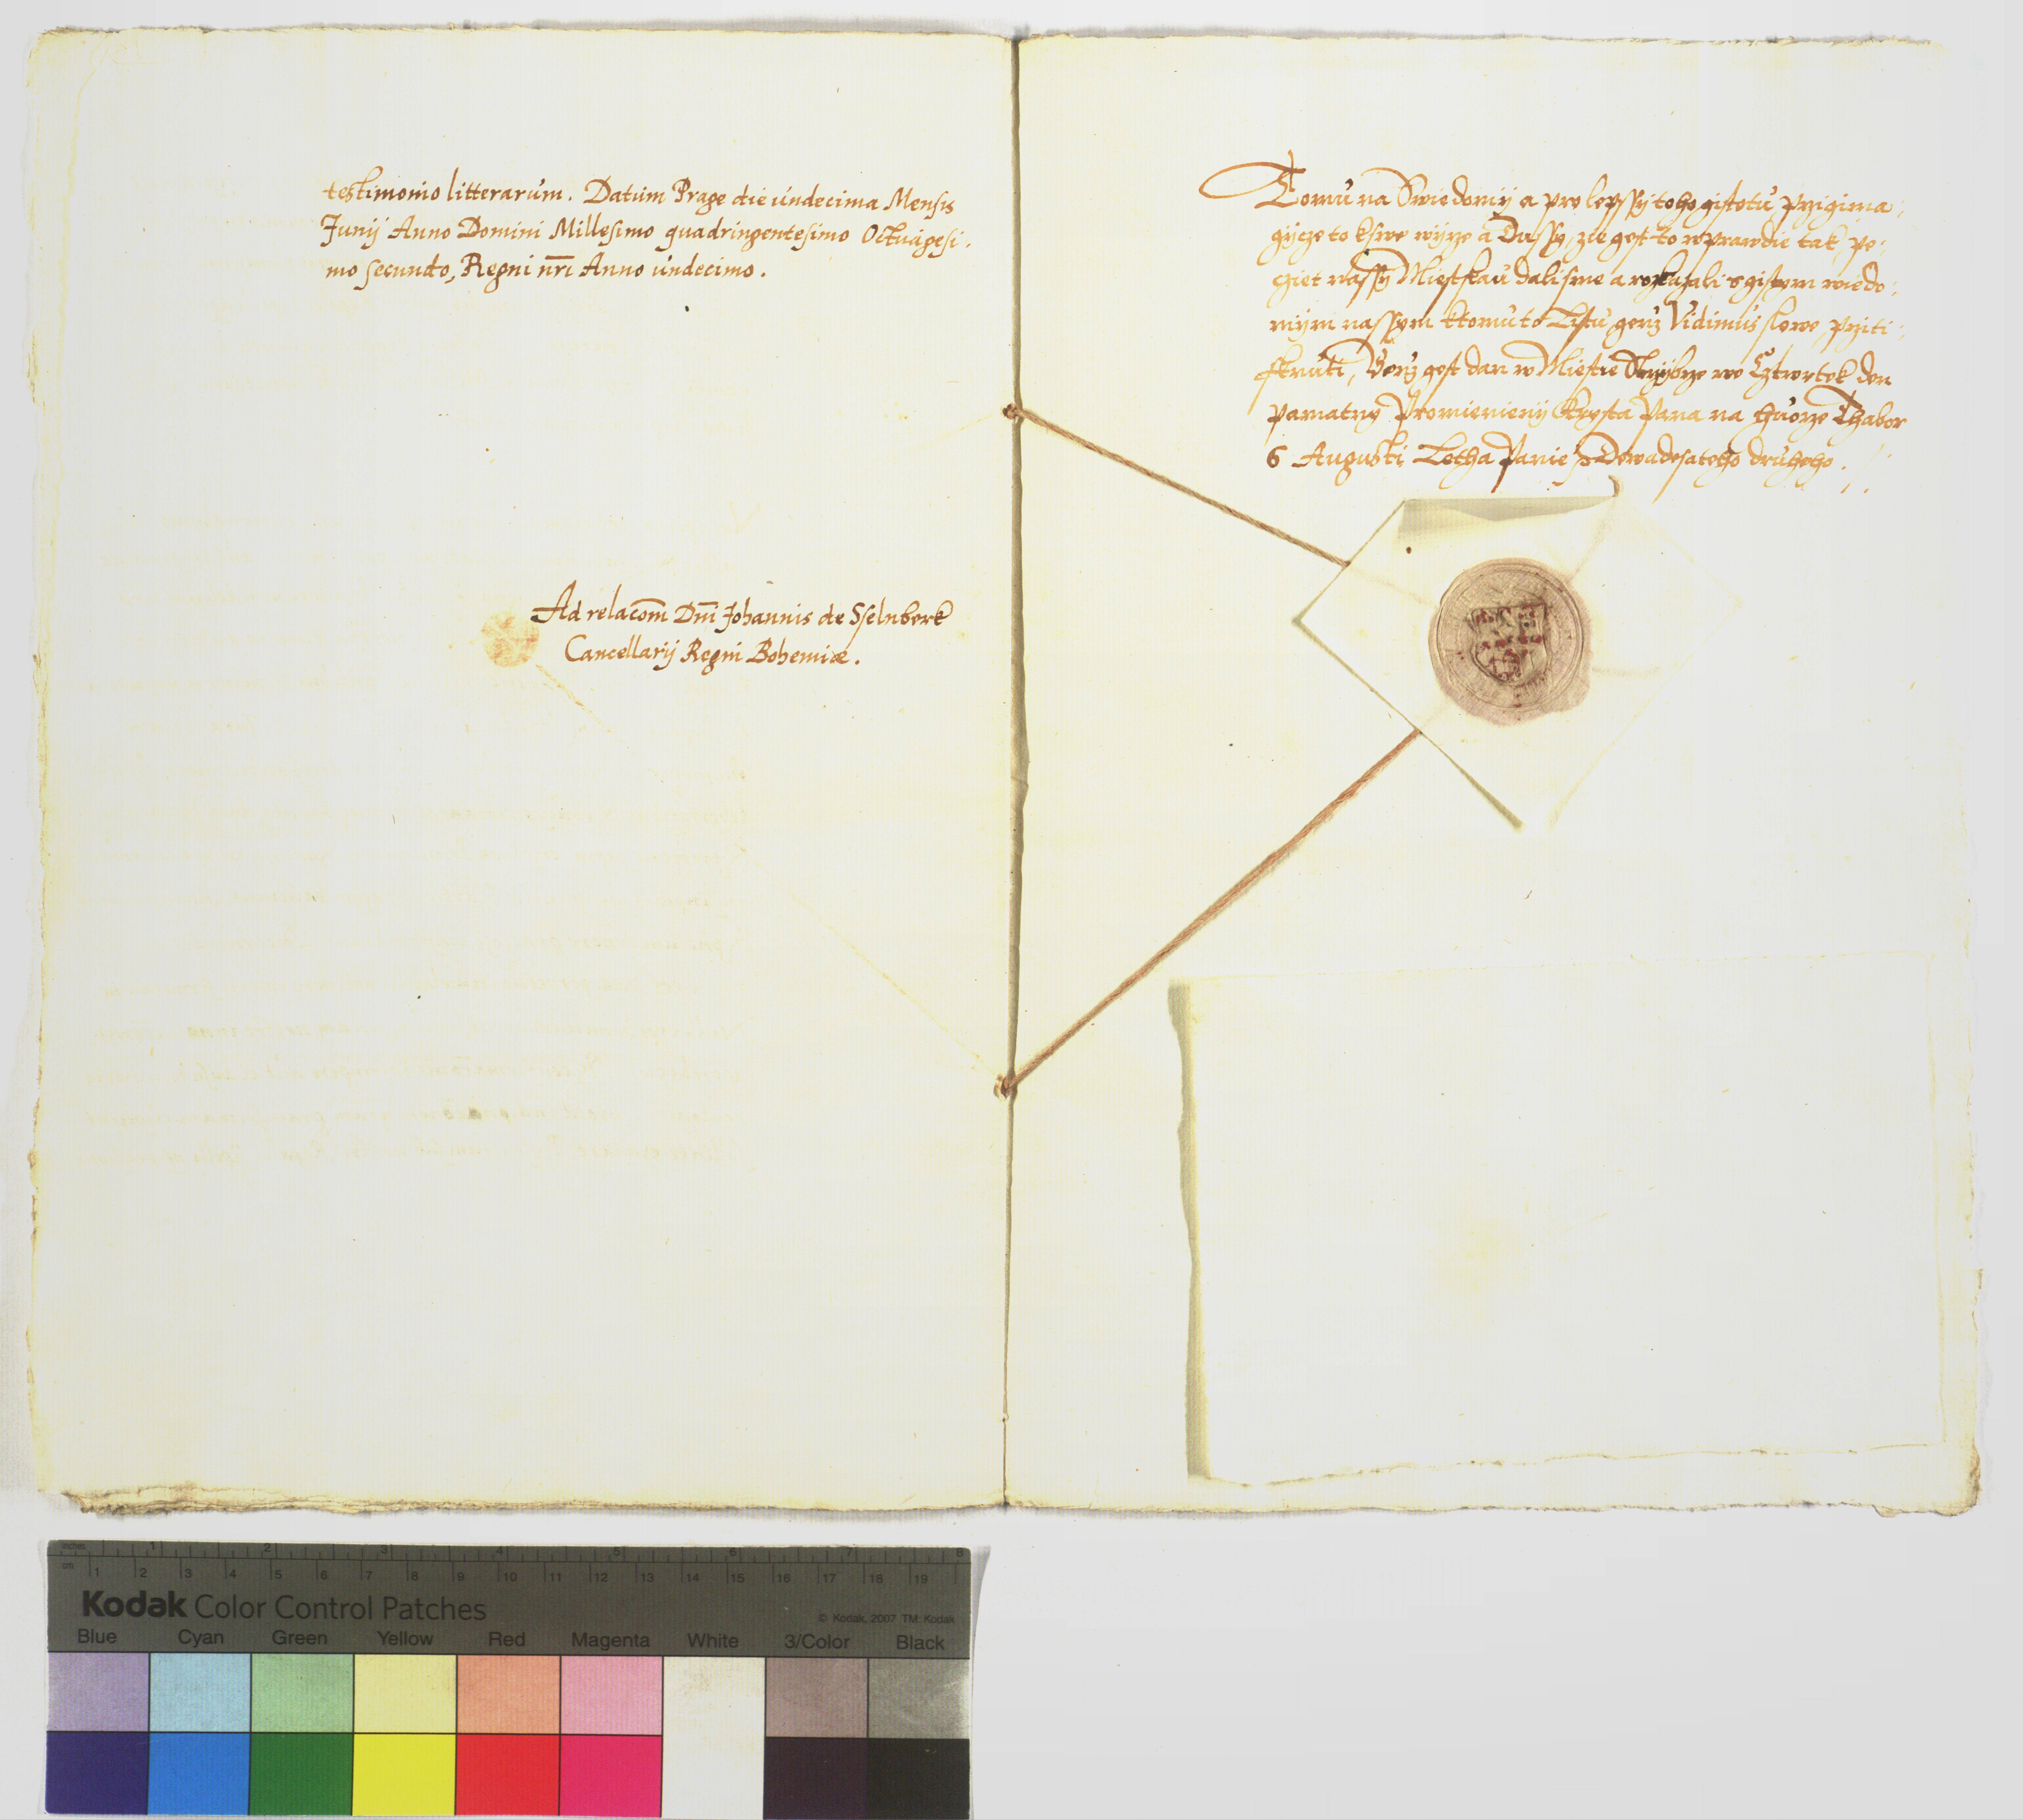 testimonio litterarúm. Datúm Prage die úndecima Mensis
Junij Anno Domini Millesimo quadringentesimo Octúagesi.
mo secundo, Regni nr̄i Anno úndecimo.
Ad relacōm Dn̄i Johannis de Sselnberk
Cancellarij Regni Bohemiæ.
Tomú na Swiedomij a pro lepssy toho gistotú, Przigima:
gijcze to k swe wijrze a Dússy, zie gest to wprawdie tak, Pe:
cziet nassy Miestskaú dali sme a rozkazali s gistym wiedo:
mijm nassym k tomúto Listú genz Vidimús slowe prziti:
sknúti, Genz gest dan w Miestie Strzijbrze we Cztwrtek den
pamatny Promienienij Krysta Pana na húorze Thabor
6 Augusti Letha Panie Dewadesateho drúheho.
inches 1 2 3 4 5 6 7 8
cm 1 2 3 4 5 6 7 8 9 10 11 12 13 14 15 16 17 18 19
Kodak Color Control Patches
© Kodak, 2007 TM: Kodak
Blue Cyan Green Yellow Red Magenta White 3/Color Black